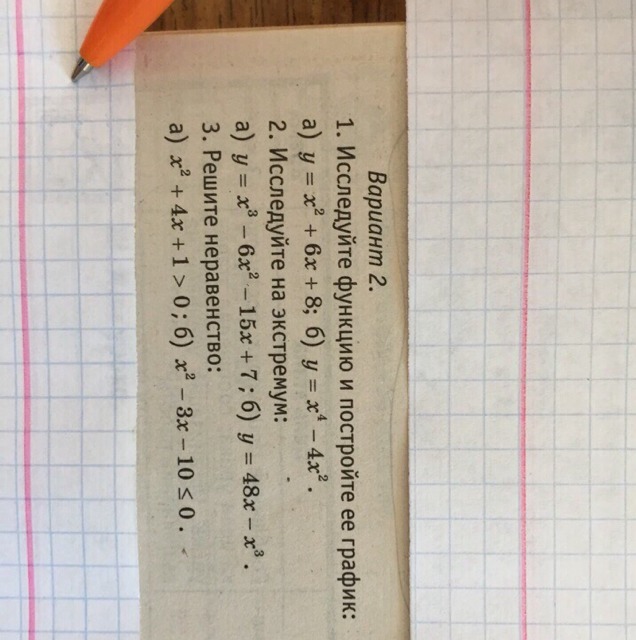 Вариант 2.
1. Исследуйте функцию и постройте ее график:
а) y = x² + 6x + 8; б) y = x⁴ − 4x².
2. Исследуйте на экстремум:
а) y = x³ − 6x² − 15x + 7; б) y = 48x − x³.
3. Решите неравенство:
а) x² + 4x + 1 > 0; б) x² − 3x − 10 ≤ 0.